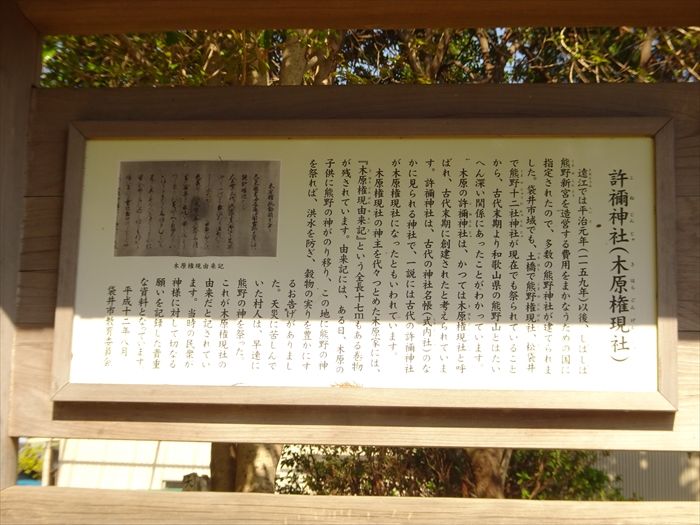 許禰神社(木原権現社)
遠江では平治元年(一一五九年)以後、しばしば
熊野新宮を造営する費用をまかなうための国に
指定されたので、多数の熊野神社が建てられま
した。袋井市域でも、土橋で熊野権現社、松袋井
で熊野十二社神社が現在でも祭られていること
から、古代末期より和歌山県の熊野山とはたい
へん深い関係にあったことがわかっています。
木原の許禰神社は、かつては木原権現社と呼
ばれ、古代末期に創建されたと考えられていま
す。許禰神社は、古代の神社名帳(式内社)のな
かに見られる神社で、一説には古代の許禰神社
が木原権現社になったともいわれています。
木原権現社の神主を代々つとめた木原家には、
『木原権現由来記』という全長十七mもある巻物
が残されています。由来記には、ある日、木原の
子供に熊野の神がのり移り、この地に熊野の神
を祭れば、洪水を防ぎ、穀物の実りを豊かにす
るお告げがありまし
た。天災に苦しんで
いた村人は、早速に
熊野の神を祭った。
これが木原権現社の
由来だと記されてい
ます。当時の民衆が
神様に対して切なる
願いを記録した貴重
な資料となっています
平成十二年八月
袋井市教育委員会
木原権現由来記